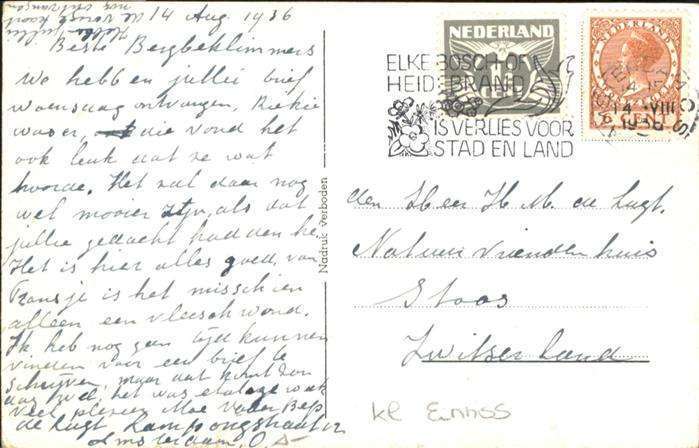 14 Aug 1936
Beste Bergbeklimmers
We hebben jullie brief
woensdag ontvangen, Riekie
was er, die vond het
ook leuk dat ze wat
hoorde. Het zal daar nog
wel mooier zijn, als dat
jullie gedacht hadden he.
Het is hier alles goed, van
Fransje is het misschien
alleen een vleeschwond.
Ik heb nog geen tijd kunnen
vinden voor een brief te
schrijven, maar dat komt zon
dag wel, het was
veel plezier Moe Vader Bep
de Lugt Lampongstraat 12
Amsterdam, O
Nadruk Verboden
NEDERLAND
NEDERLAND
5 CENT
ELKE BOSCH-OF
HEIDEBRAND
IS VERLIES VOOR
STAD EN LAND
AMSTERDAM
14 VIII
1936
den Heer H. M. de Lugt.
Natuur Vriendenhuis
Stoos
Zwitserland